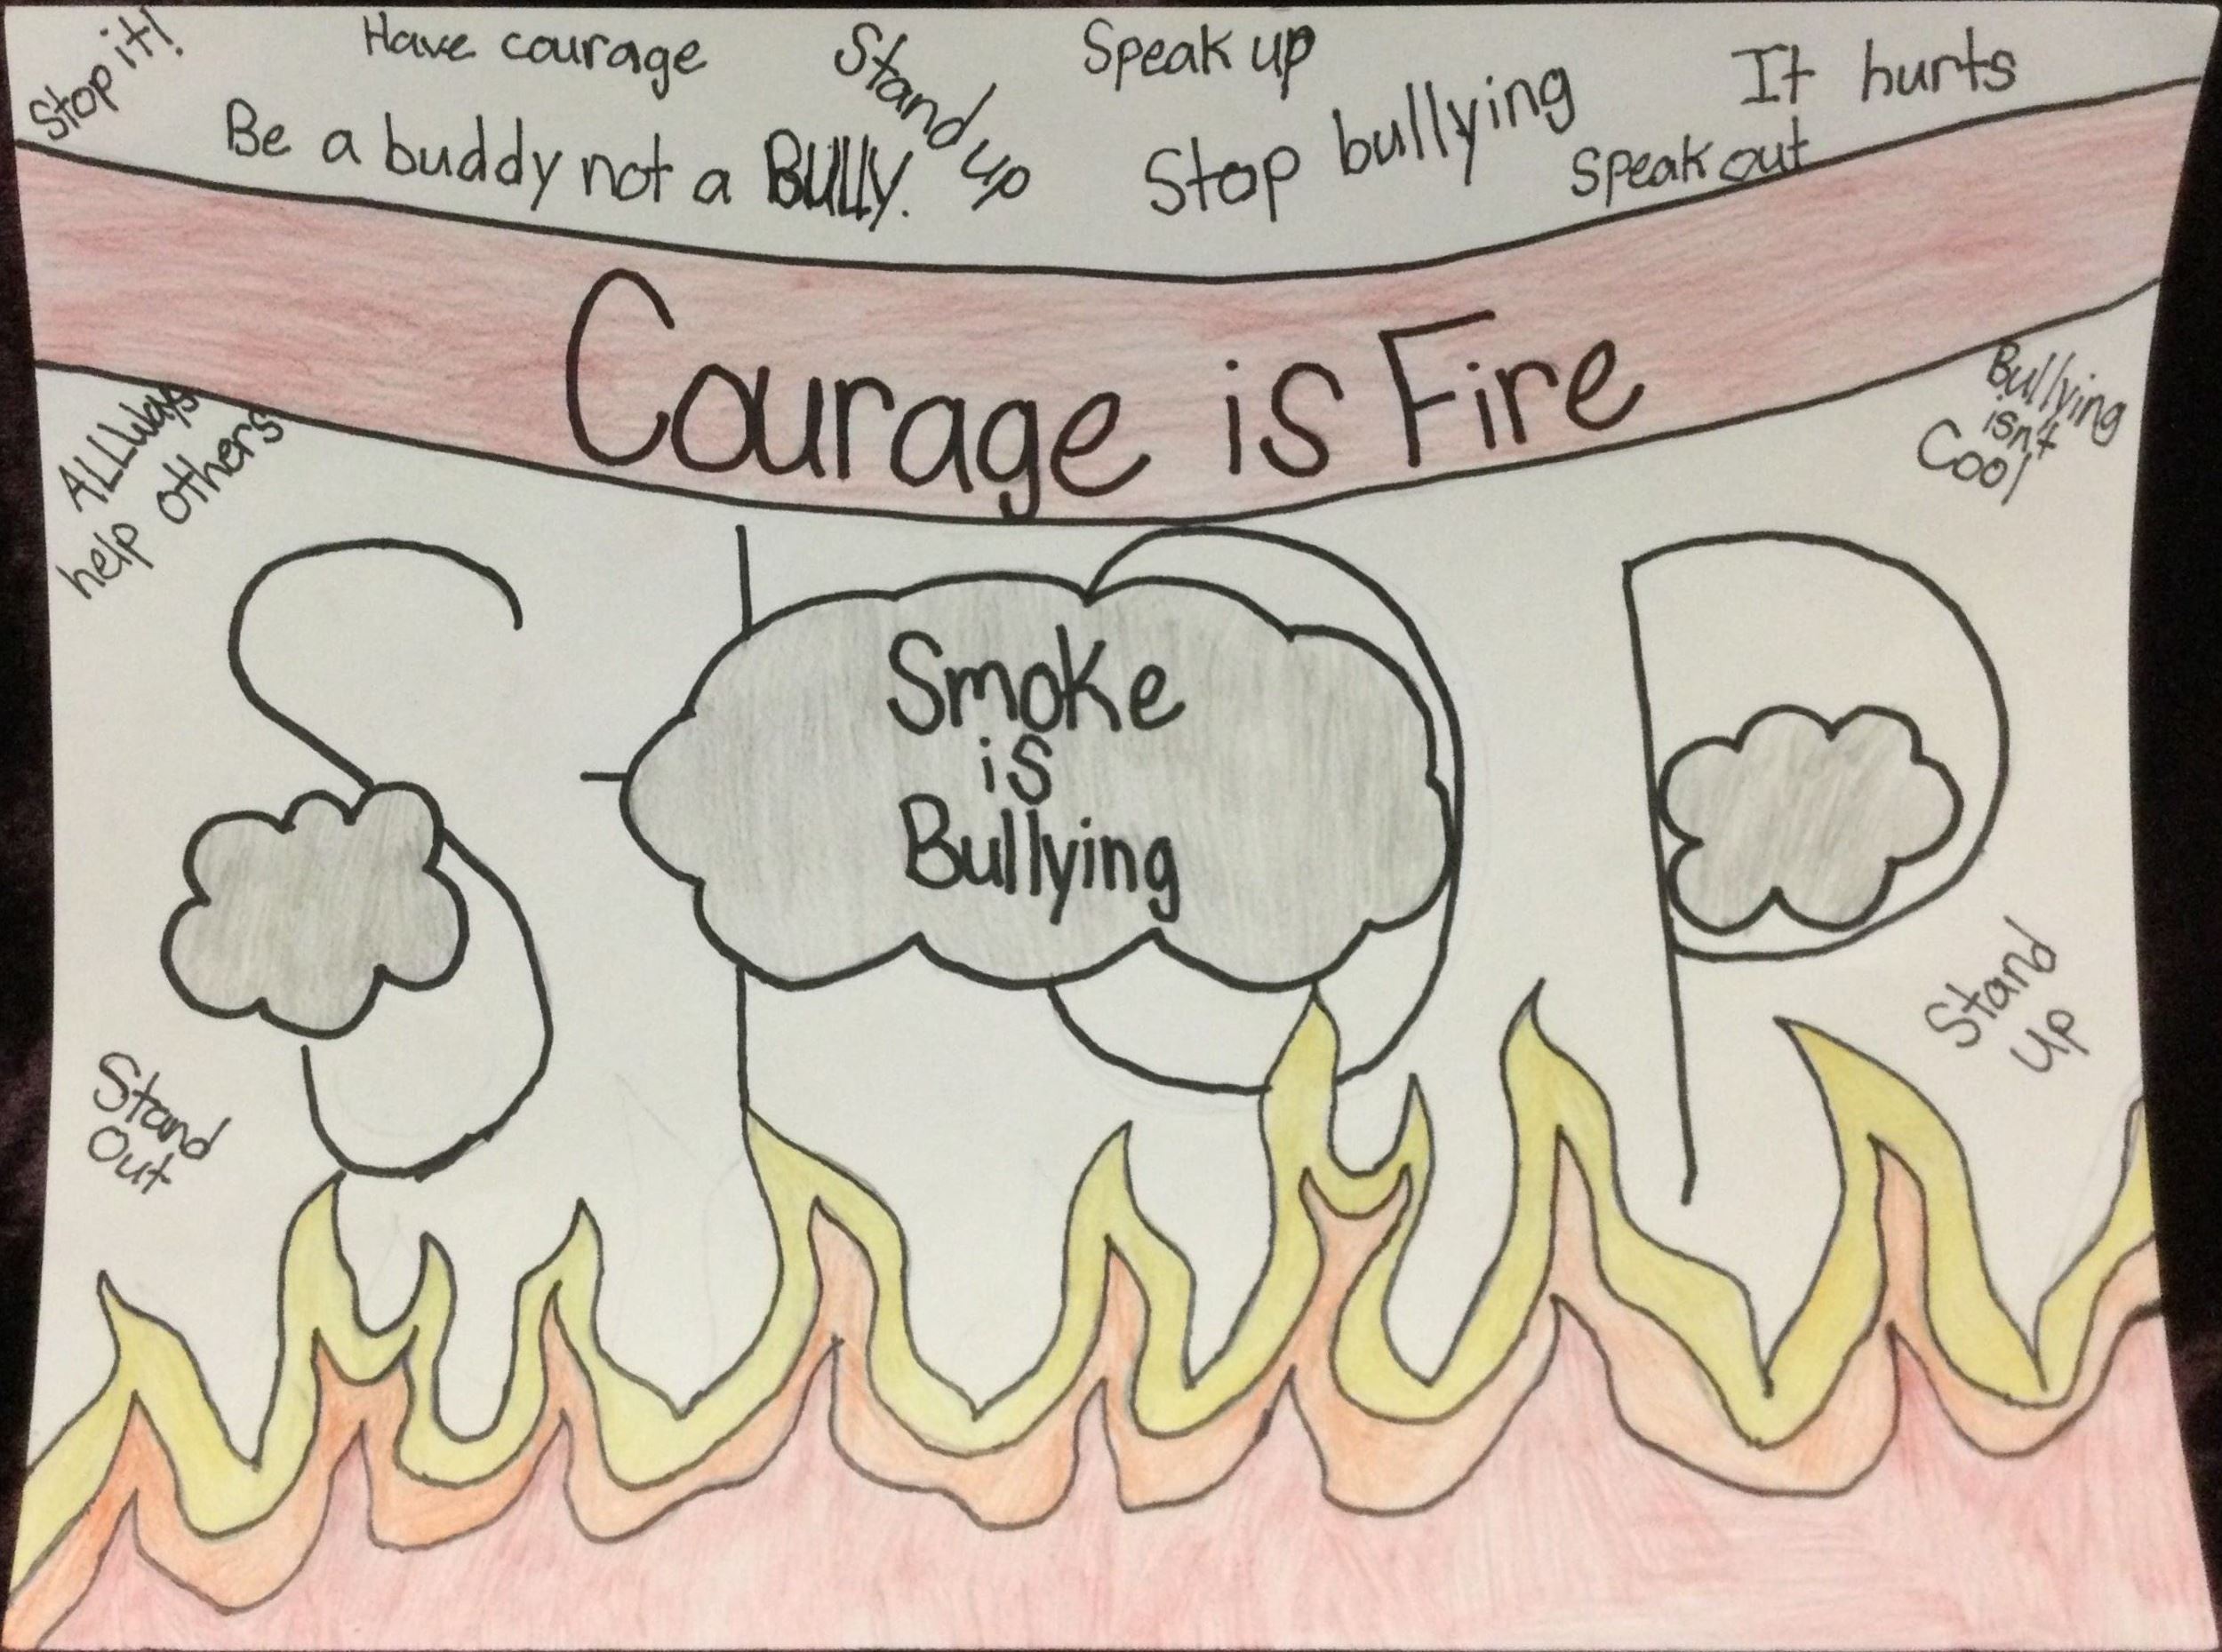 Stop it!
Have courage
Stand up
Speak up
It hurts
Be a buddy not a BULLY.
Stop bullying
Speak out
Courage is Fire
ALLWays
help others
Bullying
isn't
Cool
STOP
Smoke
is
Bullying
Stand
Out
Stand
Up